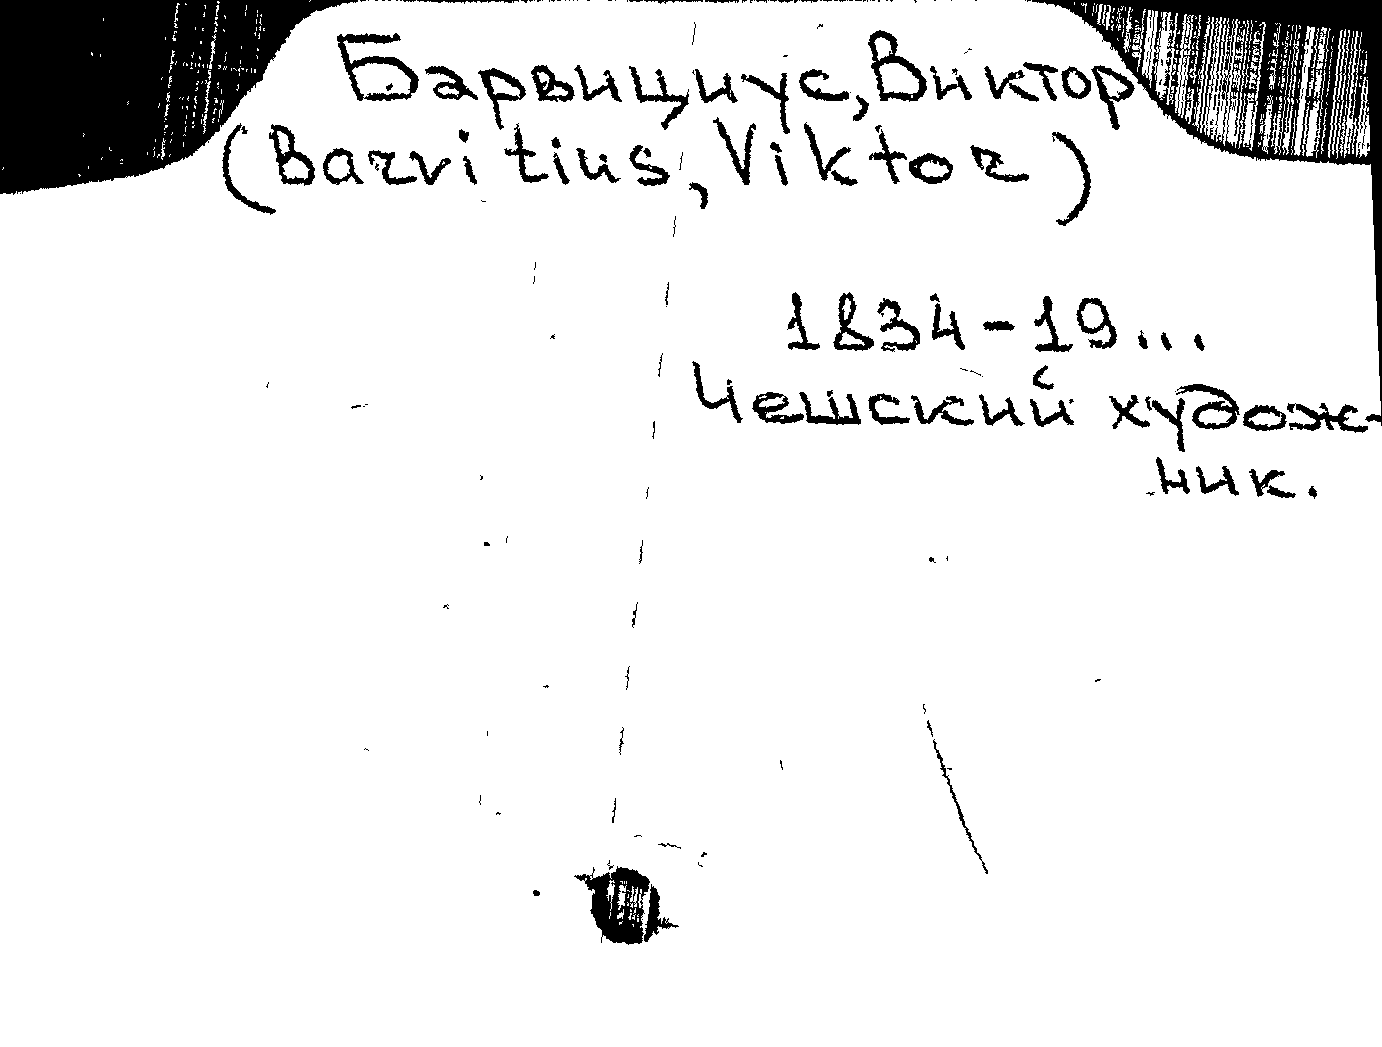 Барвициус, Виктор
(Barvitius, Viktor)
1834-19...
Чешский худож-
ник.